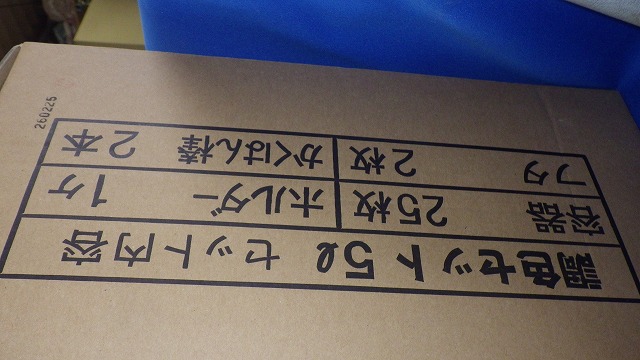 調色セット5ℓ セット内容
容器 25枚 ホルダー 1ケ
フタ 2枚 かくはん棒 2本
260225